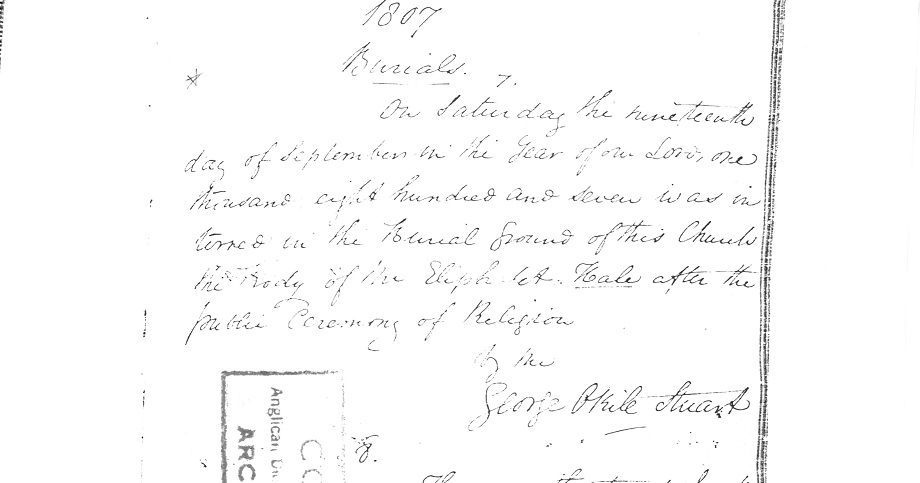 1807
Burials.
7.
On Saturday the nineteenth
day of September in the Year of our Lord, one
thousand eight hundred and seven was in
terred in the Burial Ground of this Church
the Body of Mr Eliphalet Hale after the
public Ceremony of Religion
by me
George Okill Stuart
Anglican Di
ARC
CO
8.